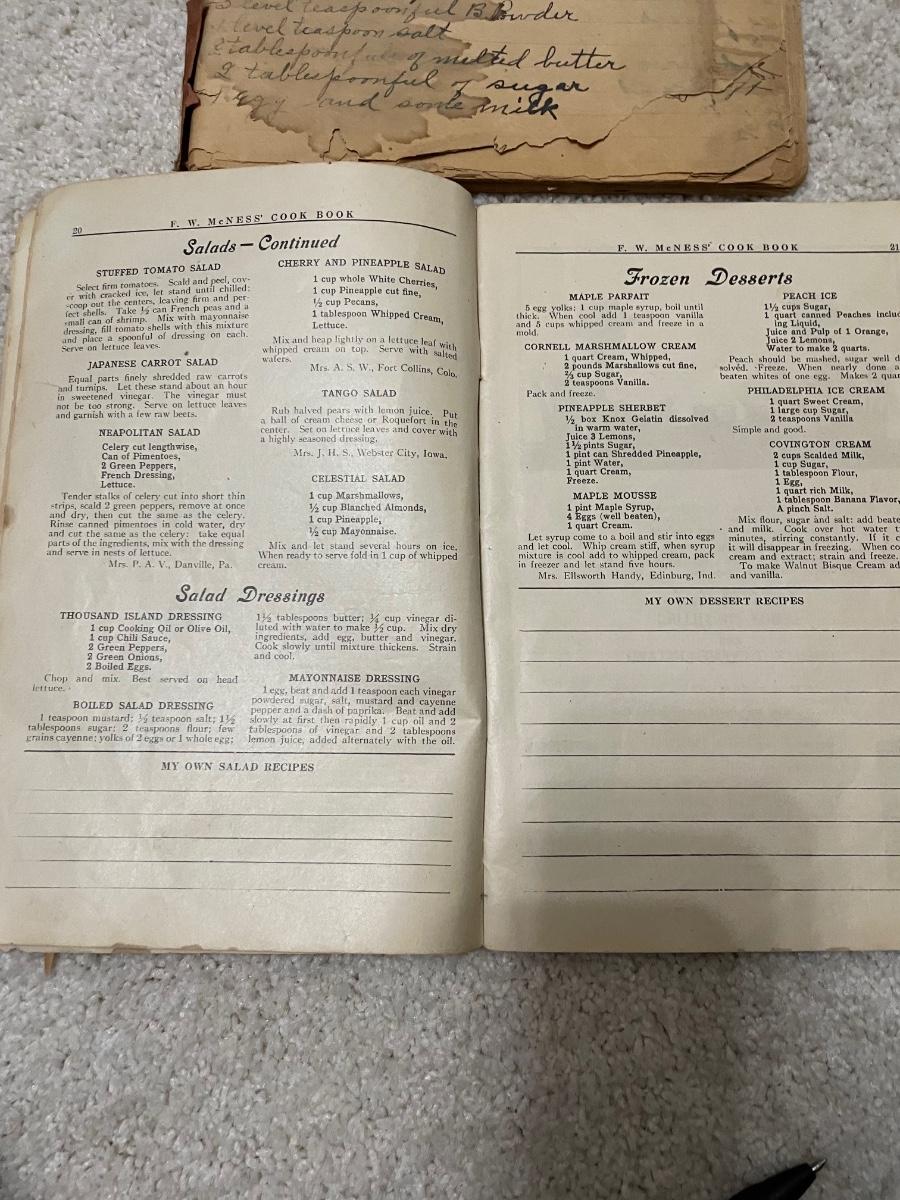 3 level teaspoonful B. Powder
level teaspoon salt
2 tablespoonfuls of melted butter
2 tablespoonful of sugar
1 egg and some milk
20
F. W. McNESS' COOK BOOK
Salads — Continued
STUFFED TOMATO SALAD
Select firm tomatoes. Scald and peel, cov-
er with cracked ice, let stand until chilled;
scoop out the centers, leaving firm and per-
fect shells. Take ½ can French peas and a
small can of shrimp. Mix with mayonnaise
dressing, fill tomato shells with this mixture
and place a spoonful of dressing on each.
Serve on lettuce leaves.
JAPANESE CARROT SALAD
Equal parts finely shredded raw carrots
and turnips. Let these stand about an hour
in sweetened vinegar. The vinegar must
not be too strong. Serve on lettuce leaves
and garnish with a few raw beets.
NEAPOLITAN SALAD
Celery cut lengthwise,
Can of Pimentoes,
2 Green Peppers,
French Dressing,
Lettuce.
Tender stalks of celery cut into short thin
strips, scald 2 green peppers, remove at once
and dry, then cut the same as the celery.
Rinse canned pimentoes in cold water, dry
and cut the same as the celery: take equal
parts of the ingredients, mix with the dressing
and serve in nests of lettuce.
Mrs. P. A. V., Danville, Pa.
CHERRY AND PINEAPPLE SALAD
1 cup whole White Cherries,
1 cup Pineapple cut fine,
½ cup Pecans,
1 tablespoon Whipped Cream,
Lettuce.
Mix and heap lightly on a lettuce leaf with
whipped cream on top. Serve with salted
wafers.
Mrs. A. S. W., Fort Collins, Colo.
TANGO SALAD
Rub halved pears with lemon juice. Put
a ball of cream cheese or Roquefort in the
center. Set on lettuce leaves and cover with
a highly seasoned dressing,
Mrs. J. H. S., Webster City, Iowa.
CELESTIAL SALAD
1 cup Marshmallows,
½ cup Blanched Almonds,
1 cup Pineapple,
½ cup Mayonnaise.
Mix and let stand several hours on ice.
When ready to serve fold in 1 cup of whipped
cream.
Salad Dressings
THOUSAND ISLAND DRESSING
1 cup Cooking Oil or Olive Oil,
1 cup Chili Sauce,
2 Green Peppers,
2 Green Onions,
2 Boiled Eggs.
Chop and mix. Best served on head
lettuce.
BOILED SALAD DRESSING
1 teaspoon mustard; ½ teaspoon salt; 1½
tablespoons sugar; 2 teaspoons flour; few
grains cayenne; yolks of 2 eggs or 1 whole egg;
1½ tablespoons butter; ¼ cup vinegar di-
luted with water to make ½ cup. Mix dry
ingredients, add egg, butter and vinegar.
Cook slowly until mixture thickens. Strain
and cool.
MAYONNAISE DRESSING
1 egg, beat and add 1 teaspoon each vinegar
powdered sugar, salt, mustard and cayenne
pepper and a dash of paprika. Beat and add
slowly at first then rapidly 1 cup oil and 2
tablespoons of vinegar and 2 tablespoons
lemon juice, added alternately with the oil.
MY OWN SALAD RECIPES
F. W. McNESS' COOK BOOK
21
Frozen Desserts
MAPLE PARFAIT
5 egg yolks; 1 cup maple syrup, boil until
thick. When cool add 1 teaspoon vanilla
and 5 cups whipped cream and freeze in a
mold.
CORNELL MARSHMALLOW CREAM
1 quart Cream, Whipped,
2 pounds Marshmallows cut fine,
⅔ cup Sugar,
2 teaspoons Vanilla.
Pack and freeze.
PINEAPPLE SHERBET
½ box Knox Gelatin dissolved
in warm water,
Juice 3 Lemons,
1½ pints Sugar,
1 pint can Shredded Pineapple,
1 pint Water,
1 quart Cream,
Freeze.
MAPLE MOUSSE
1 pint Maple Syrup,
4 Eggs (well beaten),
1 quart Cream.
Let syrup come to a boil and stir into eggs
and let cool. Whip cream stiff, when syrup
mixture is cool add to whipped cream, pack
in freezer and let stand five hours.
Mrs. Ellsworth Handy, Edinburg, Ind.
PEACH ICE
1½ cups Sugar,
1 quart canned Peaches includ
ing Liquid,
Juice and Pulp of 1 Orange,
Juice 2 Lemons,
Water to make 2 quarts.
Peach should be mashed, sugar well d
solved. Freeze. When nearly done a
beaten whites of one egg. Makes 2 quar
PHILADELPHIA ICE CREAM
1 quart Sweet Cream,
1 large cup Sugar,
2 teaspoons Vanilla
Simple and good.
COVINGTON CREAM
2 cups Scalded Milk,
1 cup Sugar,
1 tablespoon Flour,
1 Egg,
1 quart rich Milk,
1 tablespoon Banana Flavor,
A pinch Salt.
Mix flour, sugar and salt: add beate
and milk. Cook over hot water t
minutes, stirring constantly. If it c
it will disappear in freezing. When co
cream and extract; strain and freeze.
To make Walnut Bisque Cream ad
and vanilla.
MY OWN DESSERT RECIPES